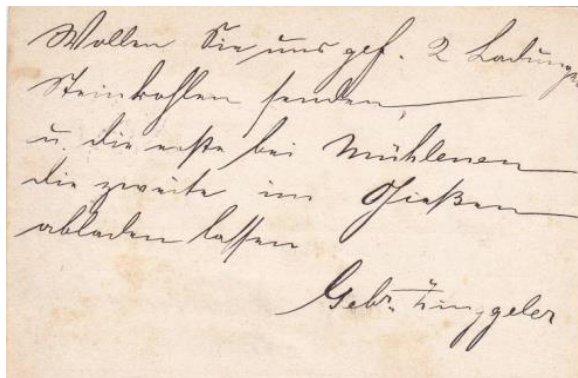 Wollen Sie uns gef. 2 Ladungen
Steinkohlen senden,
u. die erste bei Mühlenen
die zweite im Gießen
abladen lassen
Gebr. Zinggeler